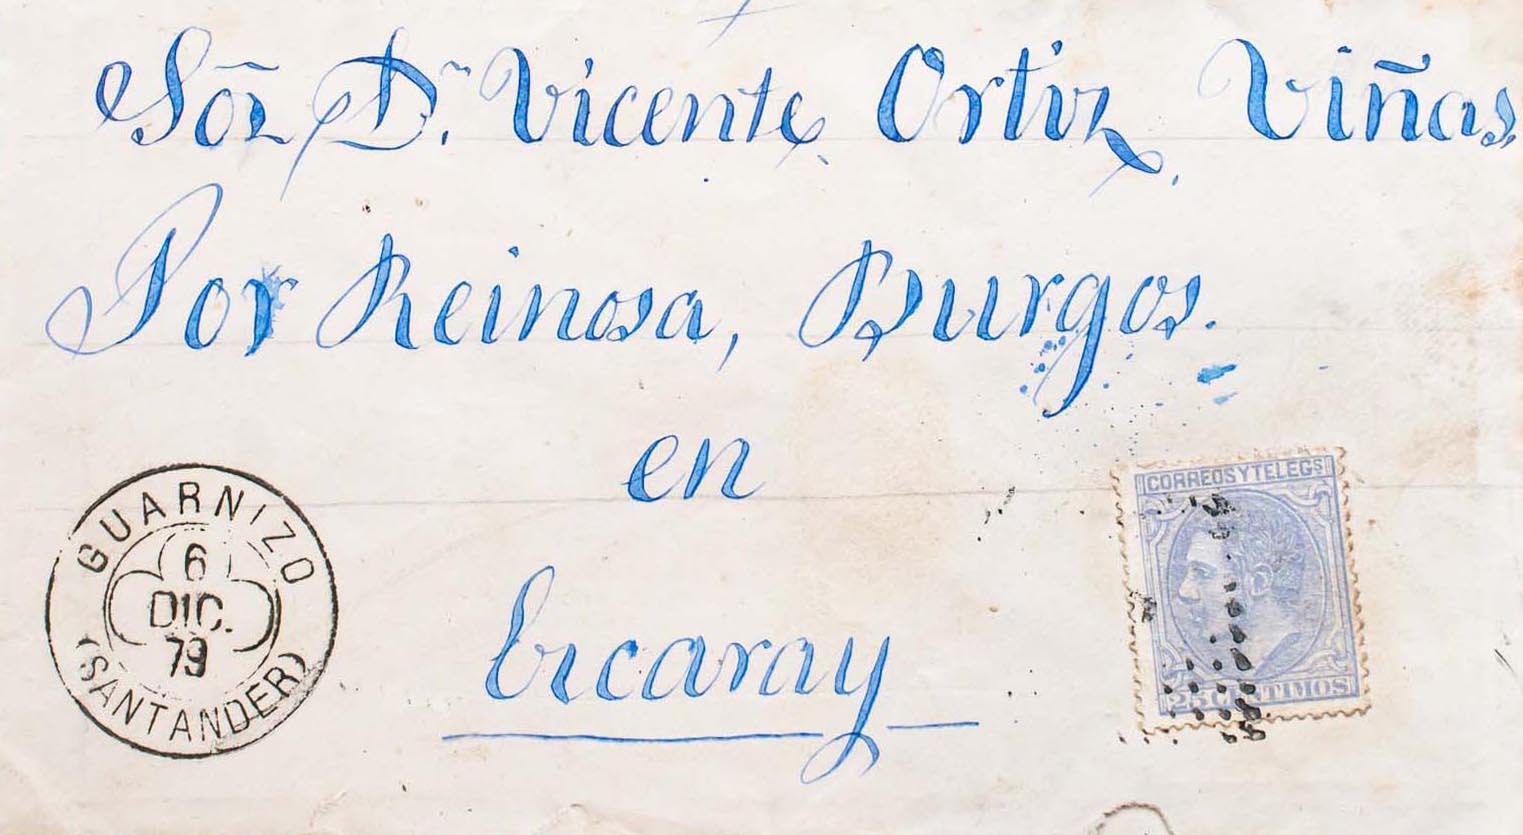 Sõr Dn. Vicente Ortiz Viñas.
Por Reinosa, Burgos.
en
Ezcaray
GUARNIZO
6
DIC.
79
(SANTANDER)
CORREOS Y TELEGS
25 CENTIMOS